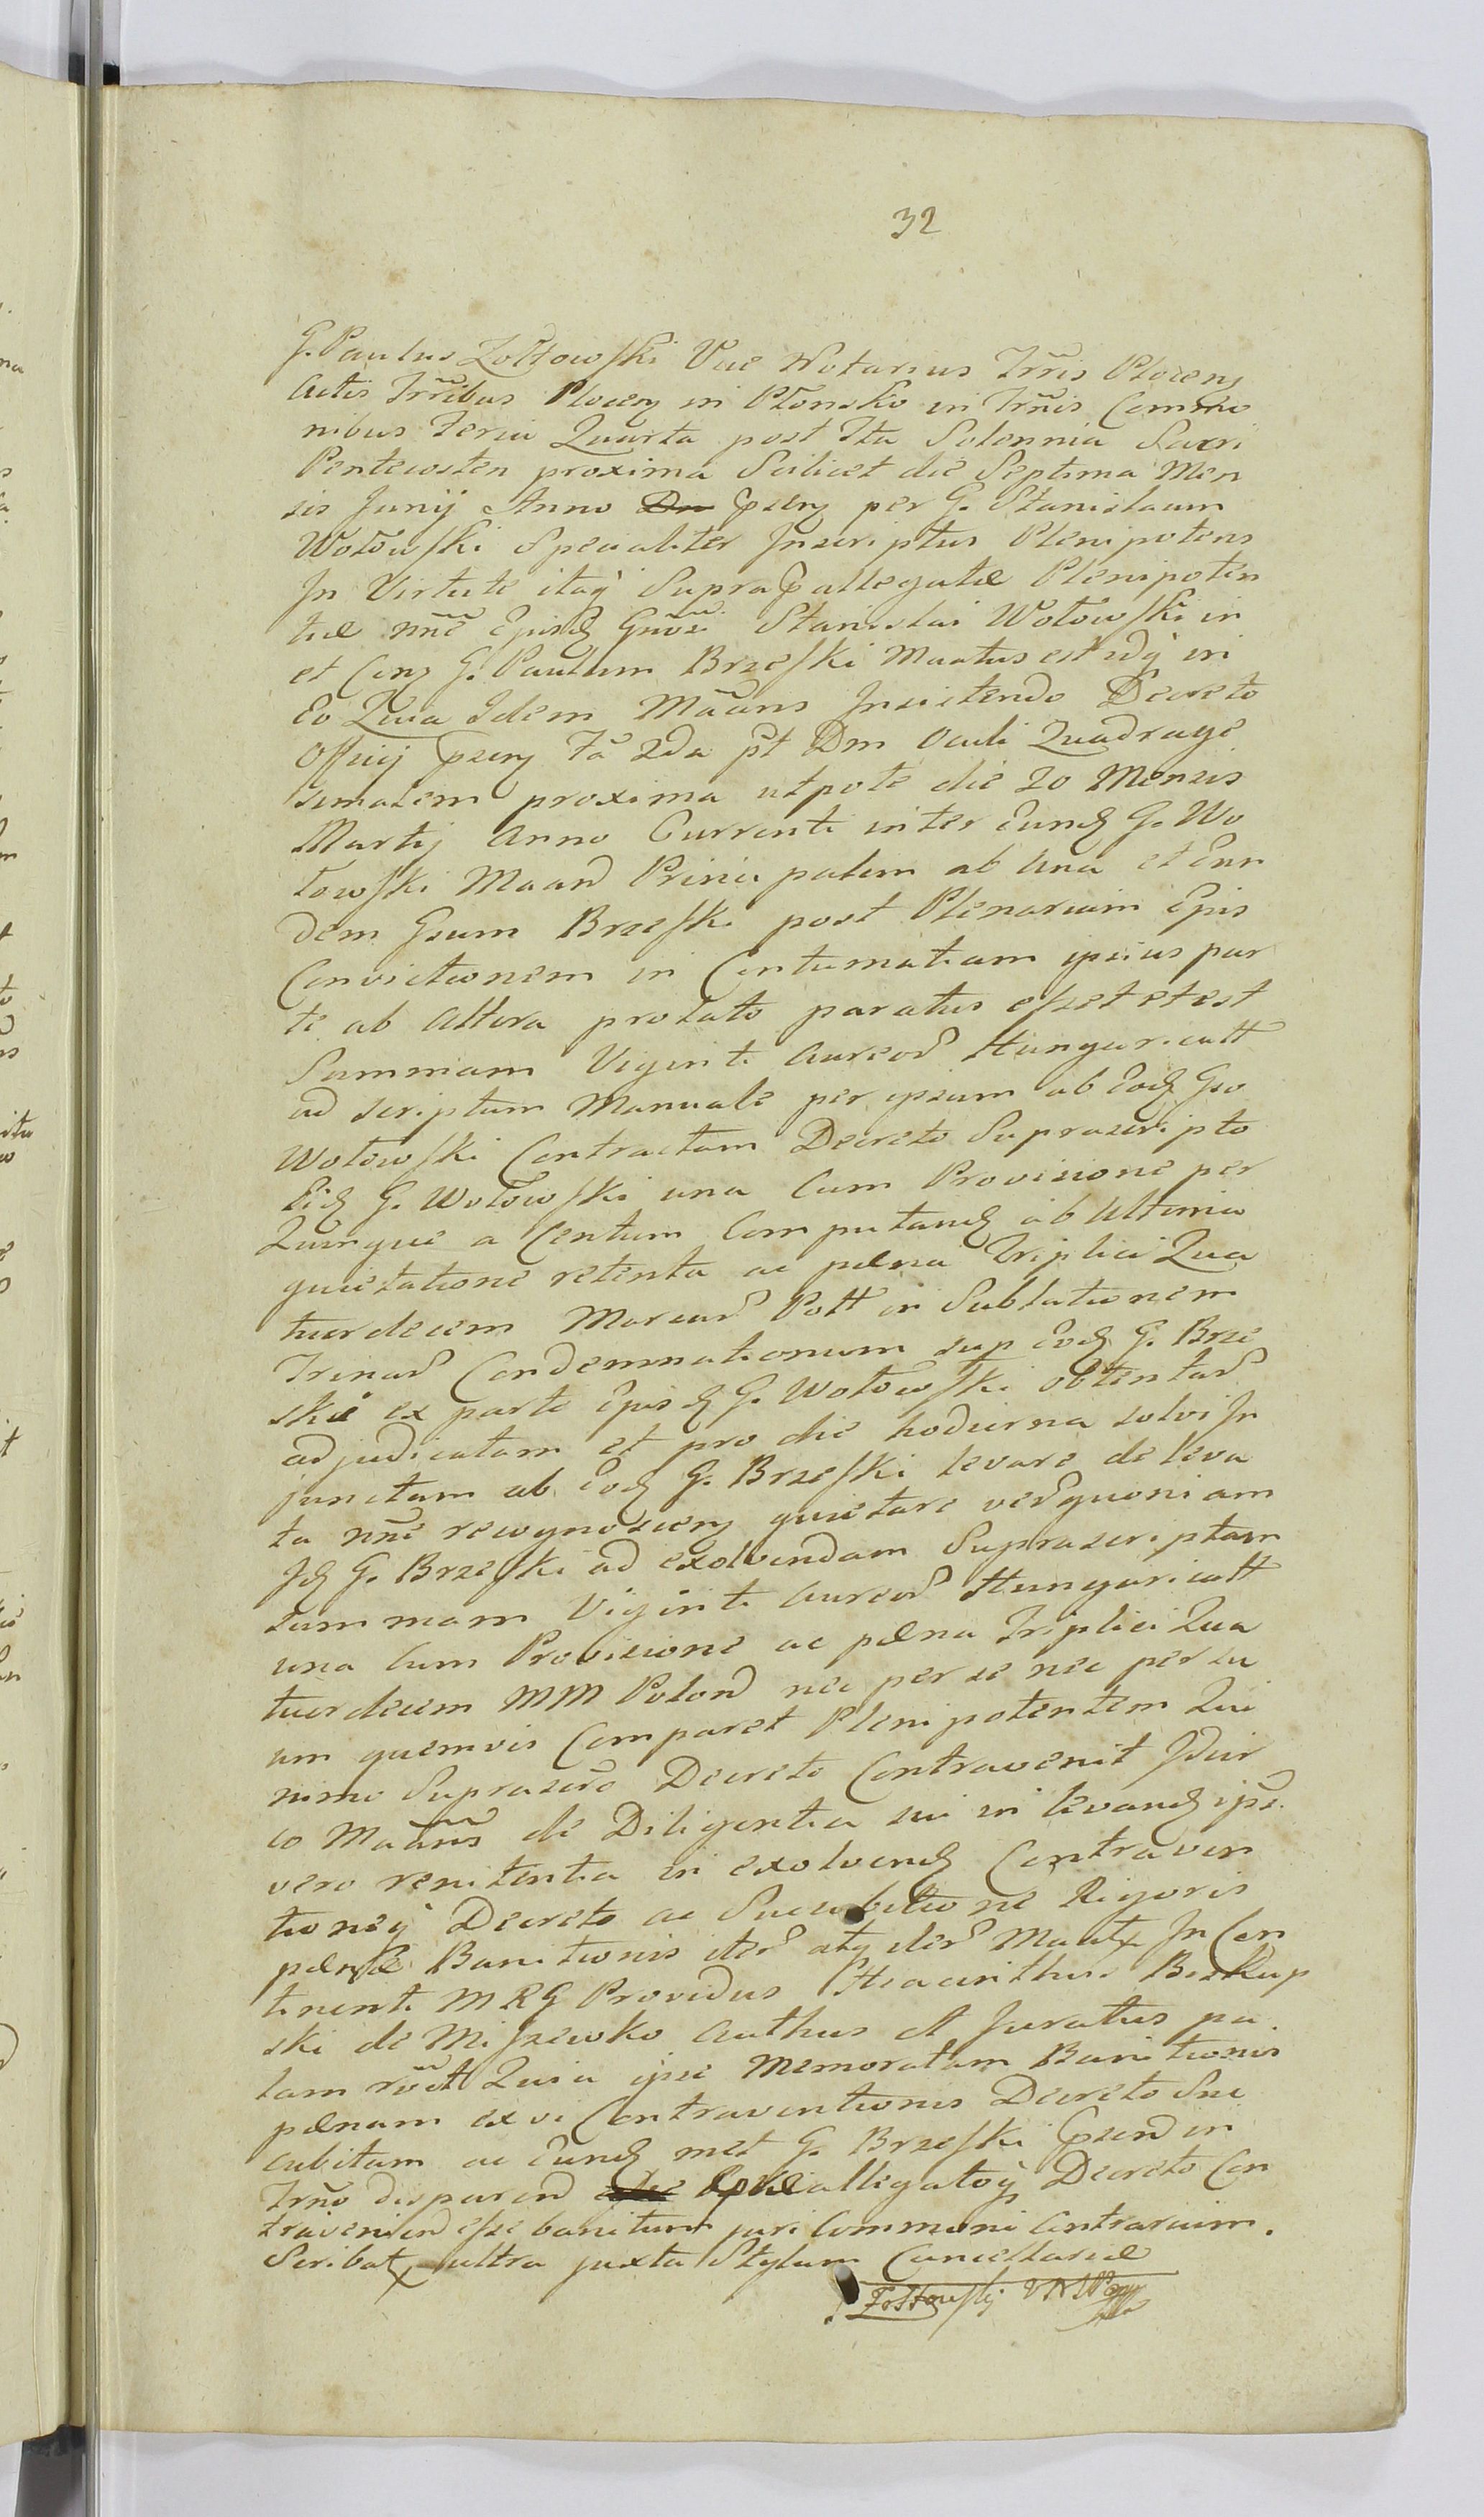 32
G. Paulus Zołtowski Vice Notarius Trr̃is Plocen̄
Actis Trr̃ibus Plocen̄ in Płonsko in Trñis Commu
nibus Feria Quarta post Fta Solennia Sacri
Pentecosten proxima Scilicet die Septima Men
sis Junij Anno Dn psen̄ per G. Stanislaum
Wołowski Specialiter Inscriptus Plenipotens
In Virtute itaq̃ Supra pallegatæ Plenipoten
tiæ nñe Epusd̃ Gñosi Stanislai Wołowski in
et Con̄ G. Paulum Brzeski Maatus est idq̃ in
Eo Quia Idem Mãans Insistendo Decreto
Officij psen̄ Fã 2da p̃t Dm Oculi Quadrage
simalem proxima utpote die 20 Mensis
Martij Anno Currenti inter Eund̃ G. Wo
łowski Maan̄ Principalem ab una et Eun
dem Gsum Brzeski post Plenariam Epis
Convictionem in Contumatiam ipsius par
te ab altera prolato paratus esset et est
Summam Viginti Aureor̃ Hungaricall
ad scriptum Manuale per ipsum ab Eod̃ Gso
Wołowski Contractam Decreto Suprascripto
Eid̃ G. Wołowski una Cum Provisione per
Quinque a Centum Computand̃ ab Ultima
quietatione retenta ac pæna Triplici Qua
tuordecem Marcar̃ Poll in Sublationem
Trinar̃ Condemnationum sup Eod̃ G. Brze
ski ex parte Epusd̃ G. Wołowski obtentar̃
adjudicatam et pro die hodierna solvi In
junctam ab Eod̃ G. Brzeski levare de leva
ta nñe recognoscen̄ quietare ver̃ quoniam
Id̃ G. Brzeski ad exolvendam Suprascriptam
summam Viginti Aureor̃ Hungaricall
una Cum Provisione ac pæna Triplici Qua
tuordecem MM Polon̄ nec per se nec per su
um quemvis Comparet Plenipotentem Qui
nimo Suprascro Decreto Contravenit Idcir
co Mãans de Diligentia sui in levand̃ ips.
vero renitentia in exolvend̃ Contraven
tioneq̃ Decreto ac Succubitione Rigoris
pænæ Banitionis iter̃ atq̃ iter̃ Maatx In Con
tinenti MRG Providus Hiacinthus Biskup
ski de Miszewko Authus et Juratus pa
lam rẽcit Quia ipse Memoratam Banitionis
pænam ex vi Contraventionis Decreto Suc
cubitam ac Eund̃ met G. Brzeski psen̄ in
Trño disparen̄ præallegatoq̃ Decreto Con
travenien̄ esse banitum juri Communi Contrarium.
Scribatx ultra juxta Stylum Cancellariæ
Zołtowskij VNTPcen̄